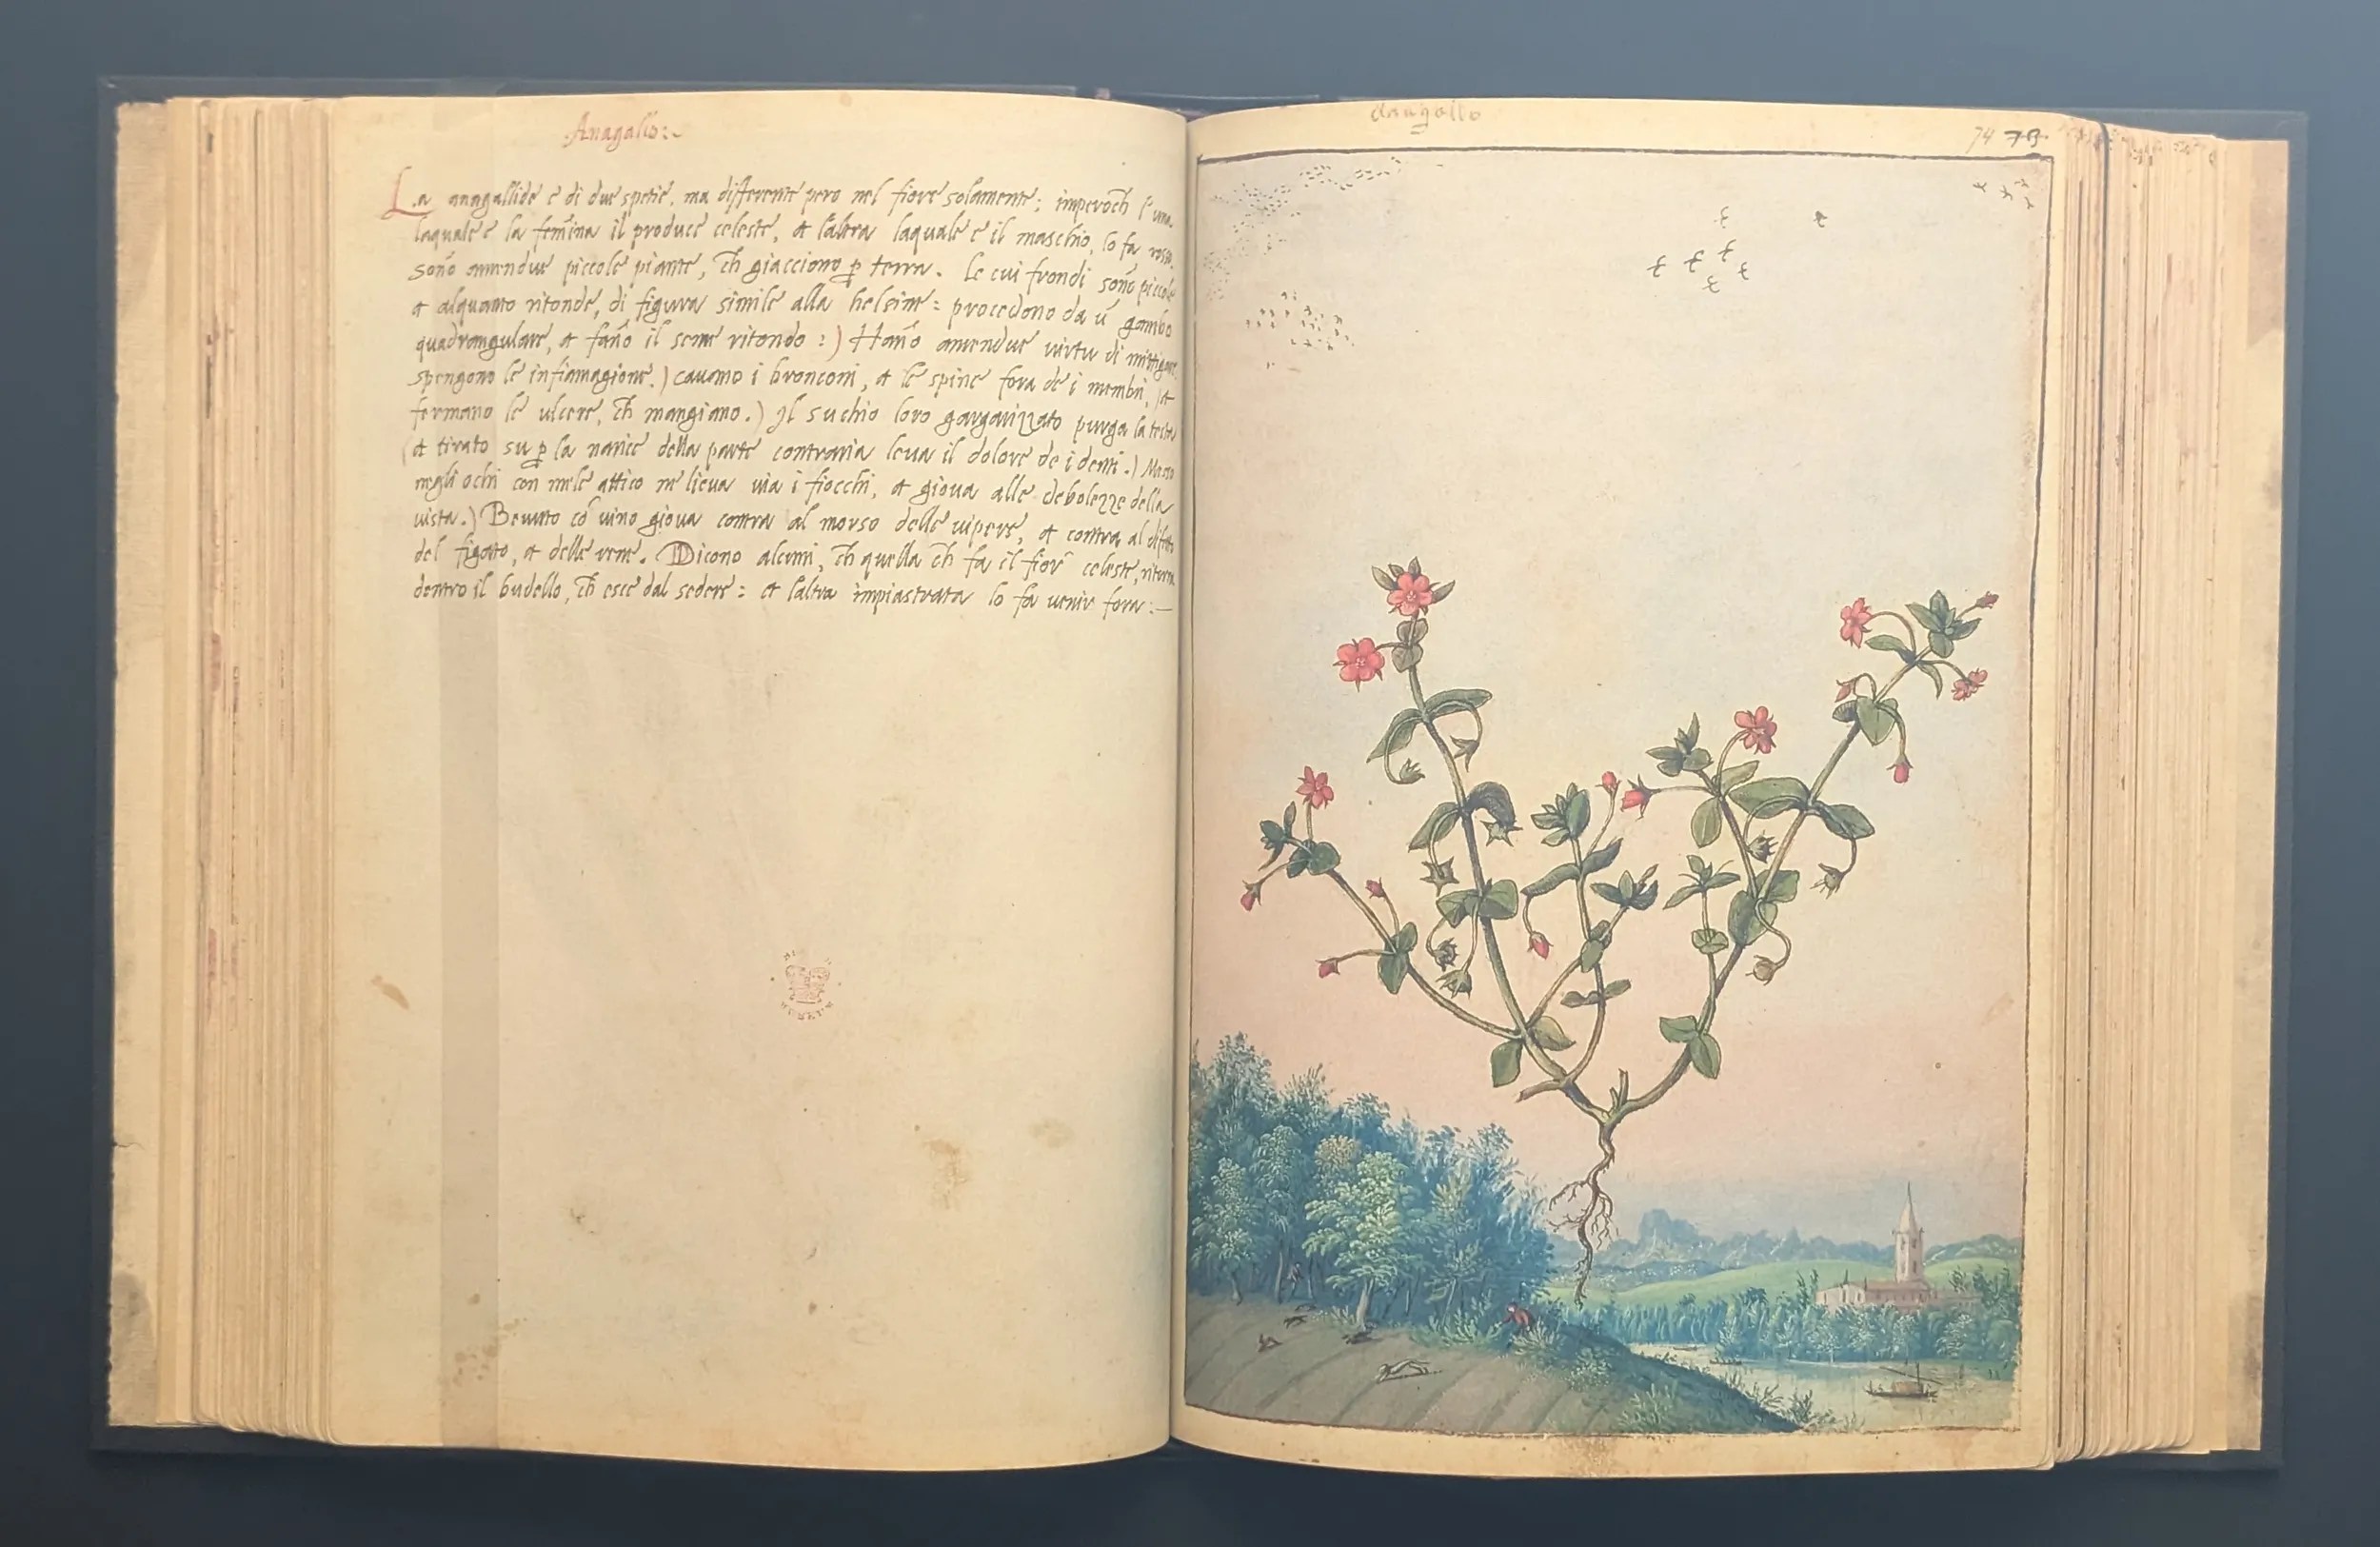 Anagallo:~
La anagallide è di due spetie, ma differente pero nel fiore solamente; imperoch l'una
laquale è la femina il produce celeste, et l'altra laquale è il maschio, lo fa rosso.
sono amendue piccole piante, ch giacciono p terra. Le cui frondi sono piccole
et alquanto ritonde, di figura simile alla helsine: procedono da ũ gambo
quadrangulare, et fano il seme ritondo :) Hano amendue virtu di mitigare
spengono le infiamagione.) cavano i bronconi, et le spine fora de i membri, et
fermano le ulcere, ch mangiano.) Il suchio loro gargarizzato purga la testa
et tirato su p la narice della parte contraria leva il dolore de i denti.) Messo
negli ochi con mele attico ne lieva via i fiocchi, et giova alle debolezze della
vista.) Bevuto cõ vino giova contra al morso delle vipere, et contra al difetto
del figato, et delle rene. Dicono alcuni, ch quella ch fa il fior celeste, ritorna
dentro il budello, ch esce dal sedere: et l'altra impiastrata lo fa venir fora:—
74 73